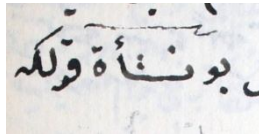 بو نشأة قولكه